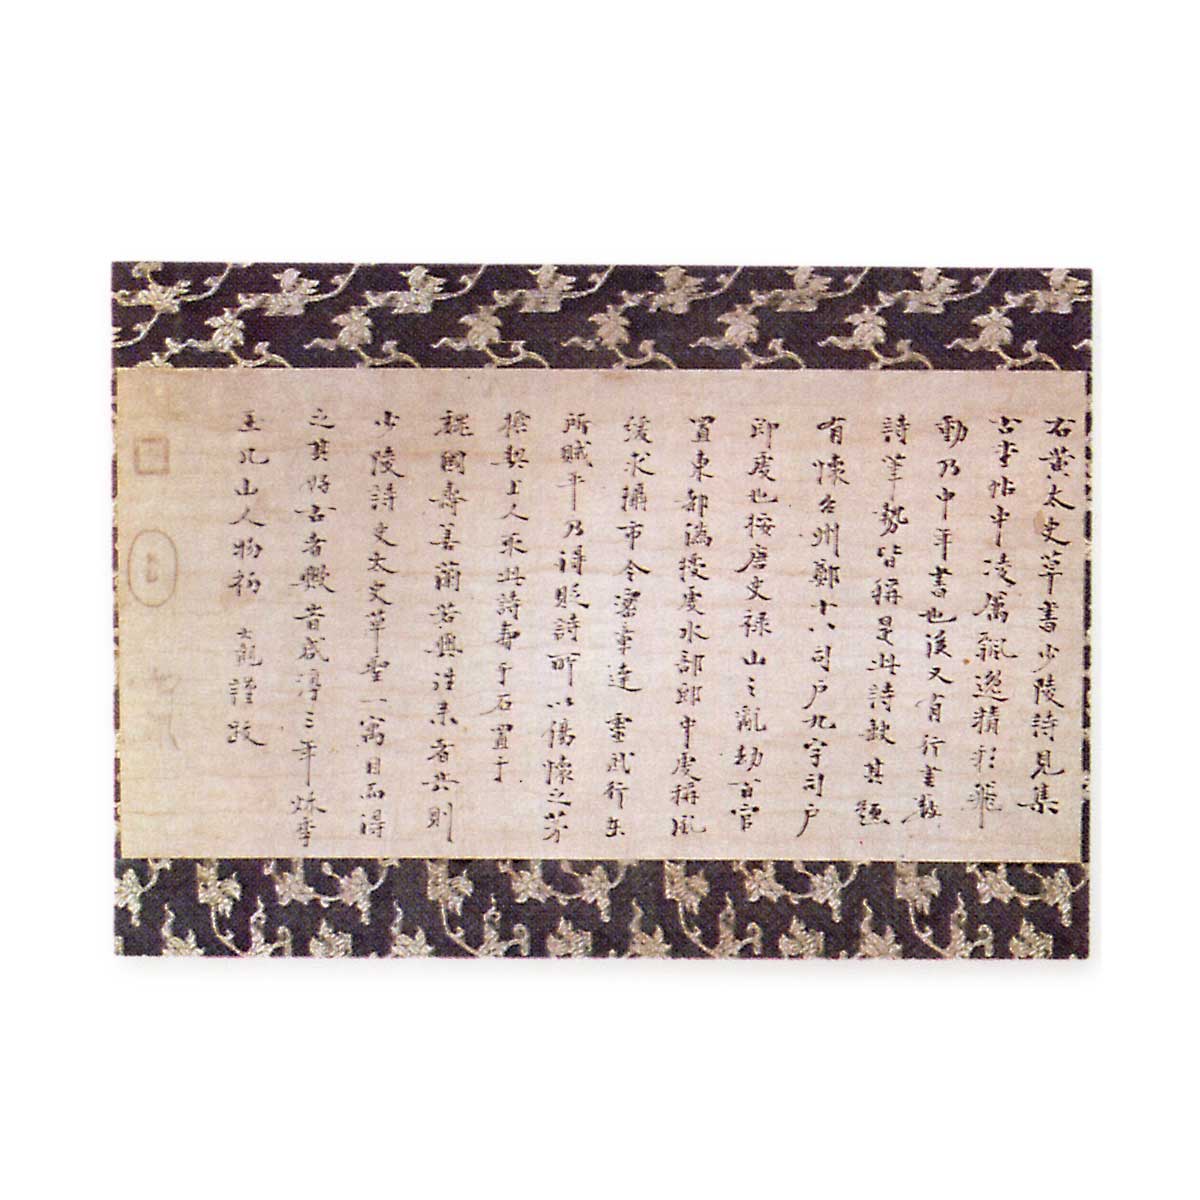 右黄太史草書少陵詩見集
古李帖中凌厲飄逸精彩飛
動乃中年書也後又有行書数
詩筆勢皆稱是此詩散其題
有懐台州鄭十八司戶九字司戶
即虔也按唐史禄山之亂劫百官
置東都偽授虔水部郎中虔稱風
緩求攝市令密章達靈武行在
所賊平乃得貶詩所以傷懐之茅
檐契上人示此詩壽于石置于
親國壽善蘭若與注来者共則
少陵詩史太史草聖一寓目而得
之其好古者歟昔咸淳三年秋季
玉几山人物初大觀謹跋